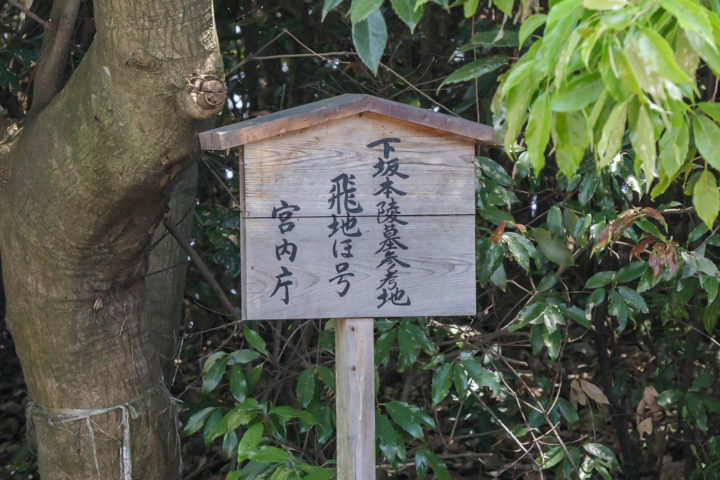 下坂本陵墓参考地
飛地ほ号
宮内庁